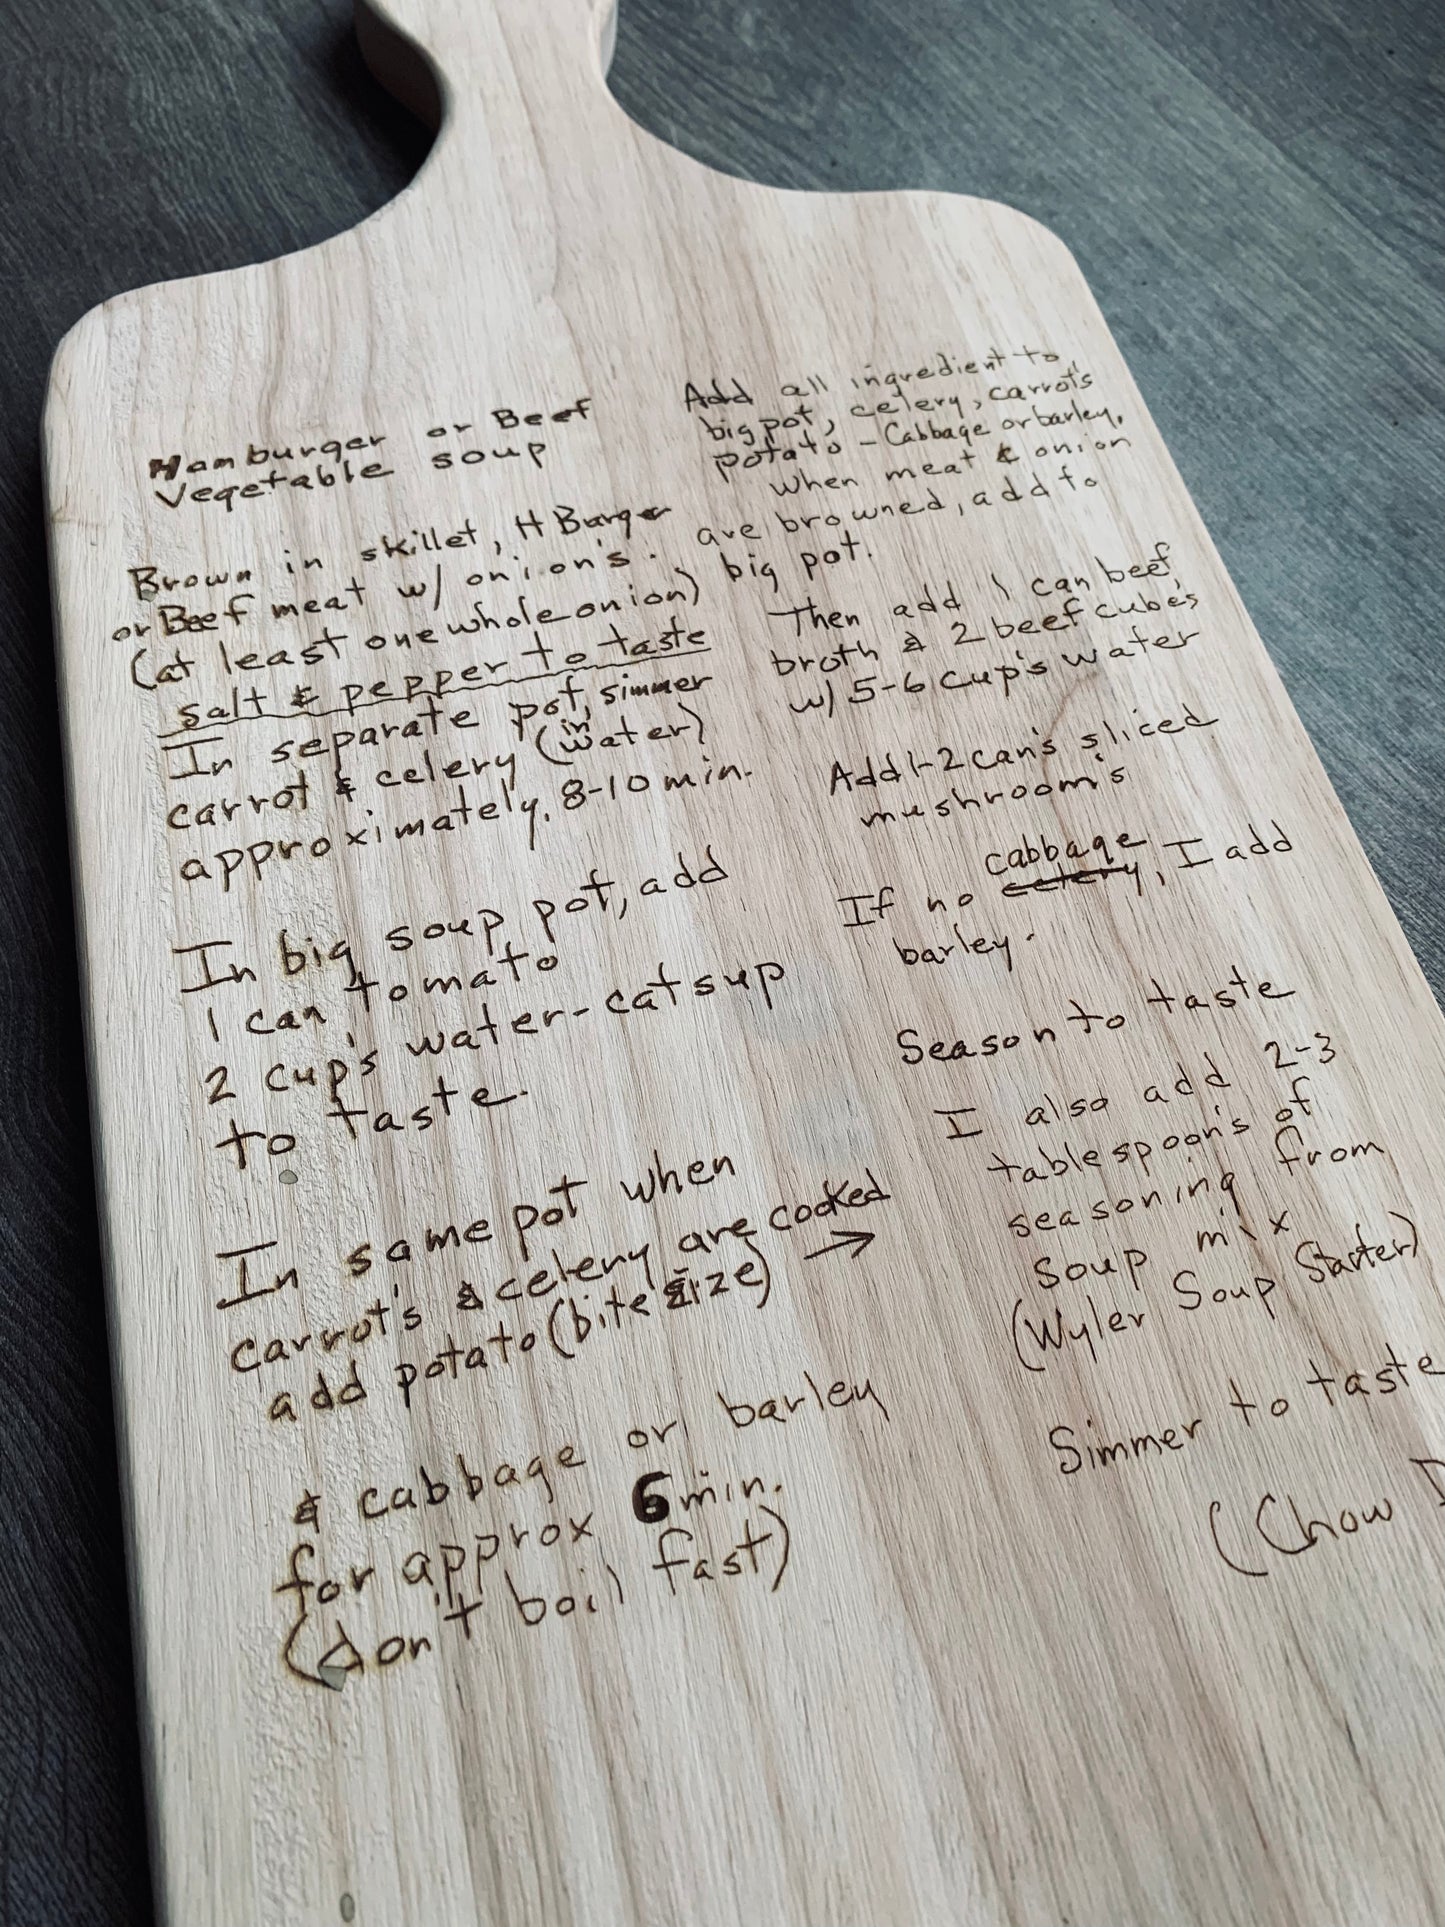 Hamburger or Beef
Vegetable soup
Brown in skillet, H Burger
or Beef meat w/ onion's.
(at least one whole onion)
salt & pepper to taste
In separate pot, simmer
carrot & celery (in water)
approximately, 8-10 min.
In big soup pot, add
1 can tomato
2 cup's water-catsup
to taste.
In same pot when
carrot's & celery are cooked
add potato (bite size) →
& cabbage or barley
for approx 6 min.
(don't boil fast)
Add all ingredient to
big pot, celery, carrots
potato - Cabbage or barley,
when meat & onion
are browned, add to
big pot.
Then add 1 can beef
broth & 2 beef cubes
w/ 5-6 cup's water
Add 1-2 can's sliced
mushroom's
If no celery cabbage, I add
barley.
Season to taste
I also add 2-3
tablespoon's of
seasoning from
soup mix
(Wyler Soup Starter)
Simmer to taste
(Chow